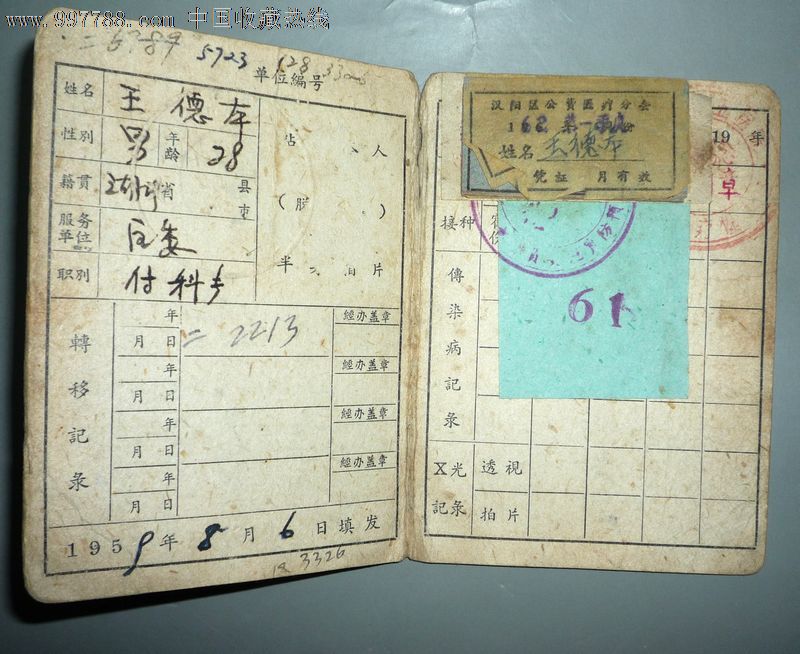 www.997788.com 中国收藏热线
5723
单位编号
3326
姓名 王德本
性别 男 年龄 28
籍贯 湖北省 县市
服务单位 区委
职别 付科长
贴 人
(脱 )
半 片
轉移記录
年月日 二2213 經办盖章
年月日 經办盖章
年月日 經办盖章
年月日 經办盖章
1959年8月6日填发
3326
汉阳区公費医疗分会
1962 第一 份
姓名 王德本
凭証 月有效
19 年
卓
接种
61
傳染病記录
X光記录 透視
拍片